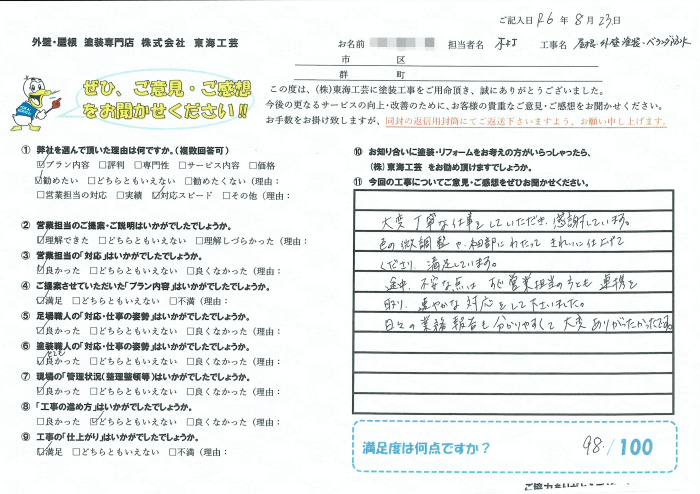 ご記入日 R6 年 8 月 23 日
外壁・屋根 塗装専門店 株式会社 東海工芸
お名前 担当者名 工事名 屋根・外壁塗装・ベランダ
市 区
郡 町
ぜひ、ご意見・ご感想
をお聞かせください!!
この度は、(株)東海工芸に塗装工事をご用命頂き、誠にありがとうございました。
今後の更なるサービスの向上・改善のために、お客様の貴重なご意見・ご感想をお聞かせください。
お手数をお掛け致しますが、同封の返信用封筒にてご返送下さいますよう、お願い申し上げます。
① 弊社を選んで頂いた理由は何ですか。(複数回答可)
☑プラン内容 □評判 □専門性 □サービス内容 □価格
☑勧めたい □どちらともいえない □勧めたくない (理由:
□営業担当の対応 □実績 ☑対応スピード □その他 (理由:
② 営業担当のご提案・ご説明はいかがでしたでしょうか。
☑理解できた □どちらともいえない □理解しづらかった (理由:
③ 営業担当の「対応」はいかがでしたでしょうか。
☑良かった □どちらともいえない □良くなかった (理由:
④ ご提案させていただいた「プラン内容」はいかがでしたでしょうか。
☑満足 □どちらともいえない □不満 (理由:
⑤ 足場職人の「対応・仕事の姿勢」はいかがでしたでしょうか。
☑良かった □どちらともいえない □良くなかった (理由:
⑥ 塗装職人の「対応・仕事の姿勢」はいかがでしたでしょうか。
とても
☑良かった □どちらともいえない □良くなかった (理由:
⑦ 現場の「管理状況(整理整頓等)」はいかがでしたでしょうか。
☑良かった □どちらともいえない □良くなかった (理由:
⑧ 「工事の進め方」はいかがでしたでしょうか。
□良かった ☑どちらともいえない □良くなかった (理由:
⑨ 工事の「仕上がり」はいかがでしたでしょうか。
☑満足 □どちらともいえない □不満 (理由:
⑩ お知り合いに塗装・リフォームをお考えの方がいらっしゃったら、
(株)東海工芸 をお勧め頂けますでしょうか。
⑪ 今回の工事についてご意見・ご感想をぜひお聞かせください。
大変丁寧な仕事をしていただき、感謝しています。
色の微調整や、細部にわたって きれいに仕上げて
くださり、満足しています。
途中、不安な点は すぐ営業担当の方とも 連携を
取り、速やかな対応をして下さいました。
日々の業務報告も分かりやすくて 大変ありがたかったです。
満足度は何点ですか? 98 / 100